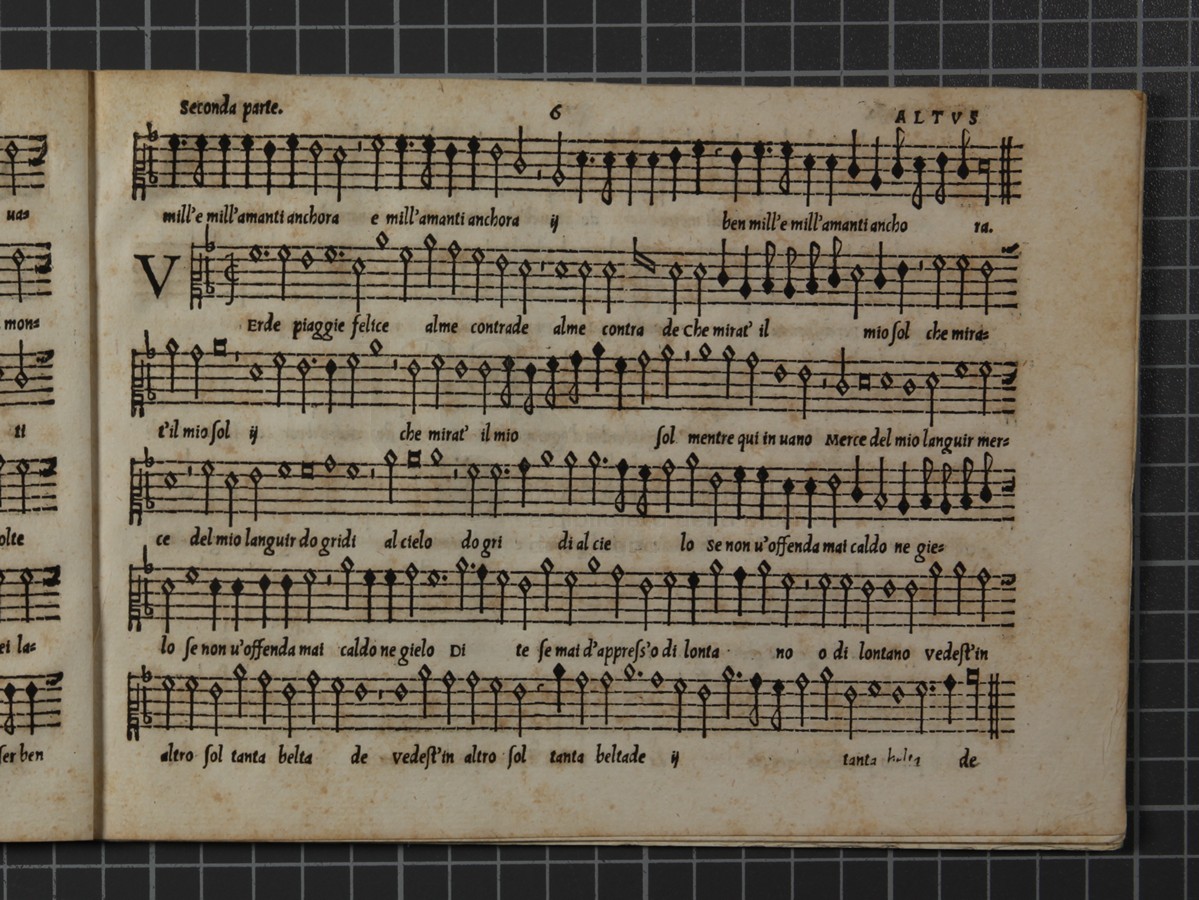 Seconda parte. 6 ALTVS
uas=
mill'e mill'amanti anchora e mill'amanti anchora ij ben mill'e mill'amanti ancho ra.
mons=
VErde piaggie felice alme contrade alme contra de Che mirat' il mio sol che mira=
ti
t'il mio sol ij che mirat' il mio sol mentre qui in uano Merce del mio languir mer=
olte
ce del mio languir do gridi al cielo do gri di al cie lo Se non u'offenda mai caldo ne gie=
ei la=
lo se non u'offenda mai caldo ne gielo Di te se mai d'appress'o di lonta no o di lontano vedest'in
ser ben
altro sol tanta belta de vedest'in altro sol tanta beltade ij tanta belta de